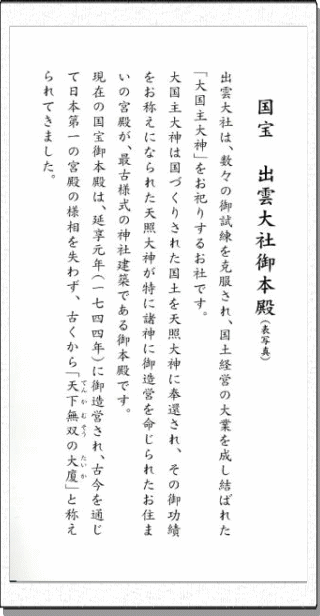 国宝　出雲大社御本殿（表写真）
出雲大社は、数々の御試練を克服され、国土経営の大業を成し結ばれた
「大国主大神」をお祀りするお社です。
大国主大神は国づくりされた国土を天照大神に奉還され、その御功績
をお称えになられた天照大神が特に諸神に御造営を命じられたお住ま
いの宮殿が、最古様式の神社建築である御本殿です。
現在の国宝御本殿は、延享元年（一七四四年）に御造営され、古今を通じ
て日本第一の宮殿の様相を失わず、古くから「天下無双の大廈」と称え
てんかむそう　たいか
られてきました。